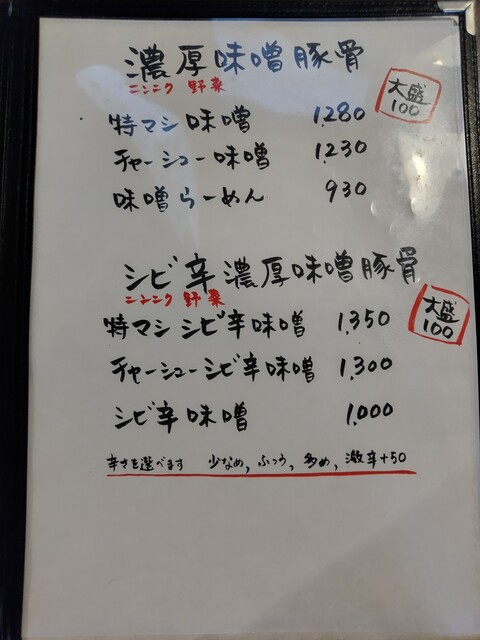 濃厚味噌豚骨
ニンニク 野菜
大盛
100
特マシ味噌 1,280
チャーシュー味噌 1,230
味噌らーめん 930
シビ辛濃厚味噌豚骨
ニンニク 野菜
大盛
100
特マシシビ辛味噌 1,350
チャーシューシビ辛味噌 1,300
シビ辛味噌 1,000
辛さを選べます 少なめ, ふつう, 多め, 激辛+50